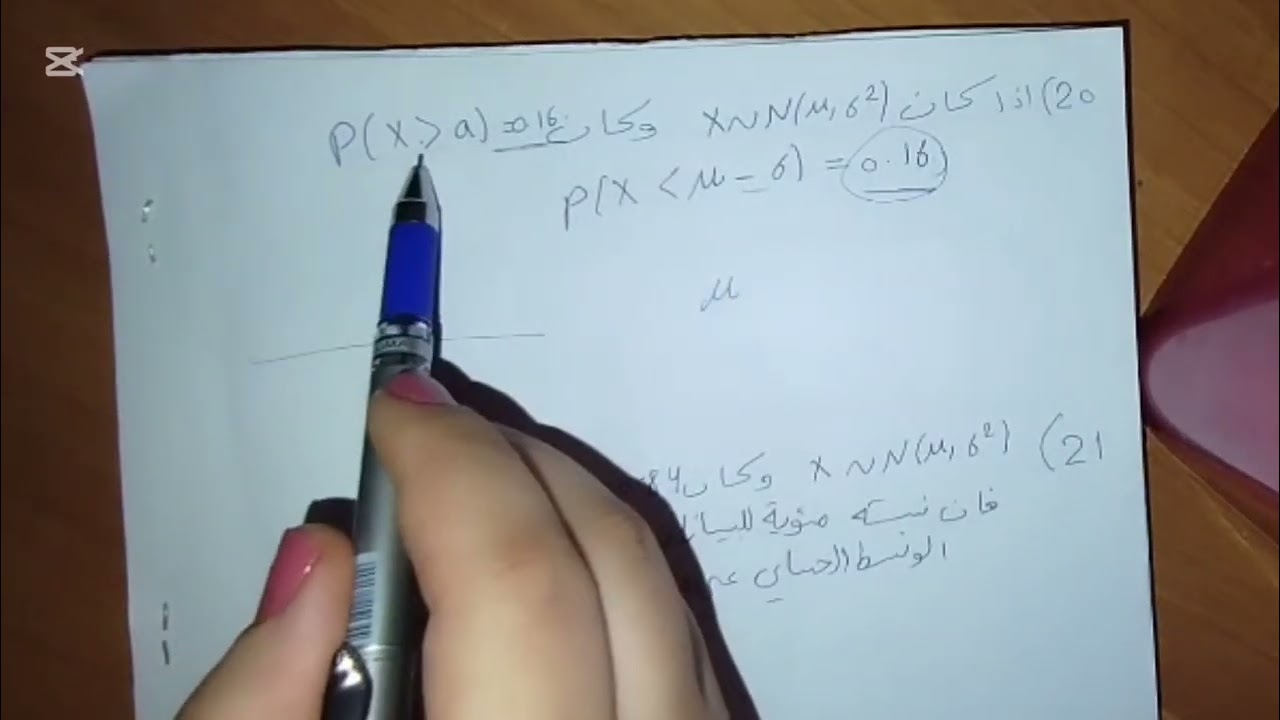 20) اذا كان X~N(μ, σ²) وكان P(X > a) = 0.16
P(X < μ - σ) = 0.16
μ
21) X~N(μ, σ²) وكان 84
فان نسبته مئوية
الوسط الحسابي